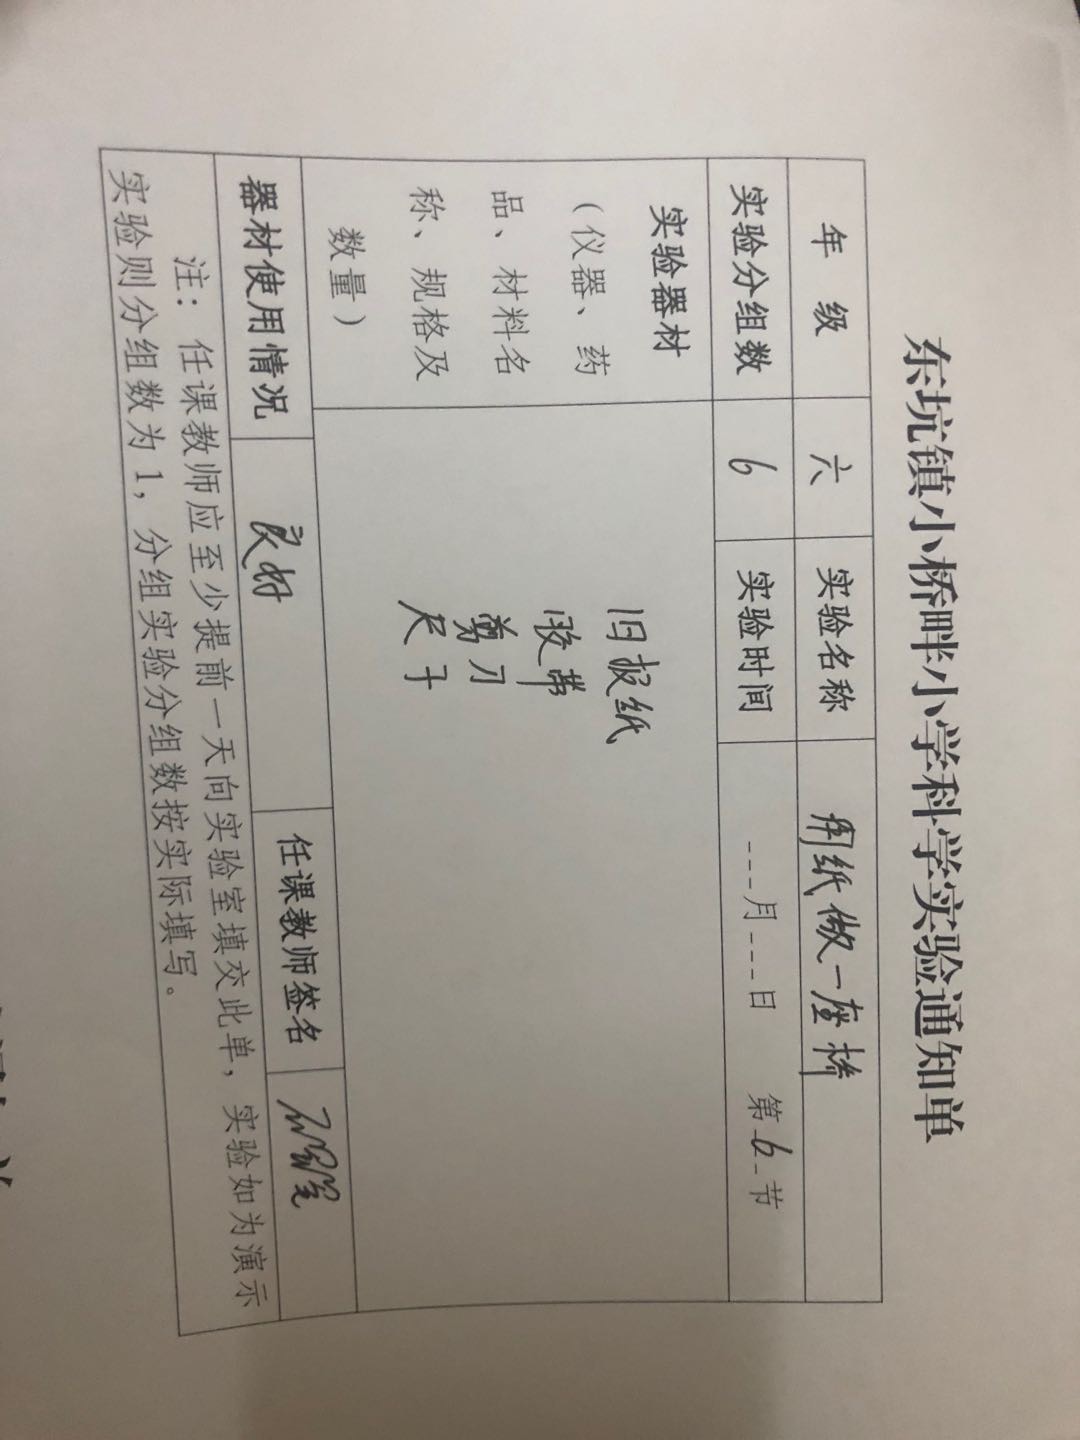 东坑镇小桥畔小学科学实验通知单
年 级 六 实验名称 用纸做一座桥
实验分组数 6 实验时间 ---月---日 第6-节
实验器材
（仪器、药
品、材料名
称、规格及
数量）
旧报纸
胶带
剪刀
尺子
器材使用情况 良好 任课教师签名
注：任课教师应至少提前一天向实验室填交此单，实验如为演示
实验则分组数为1，分组实验分组数按实际填写。